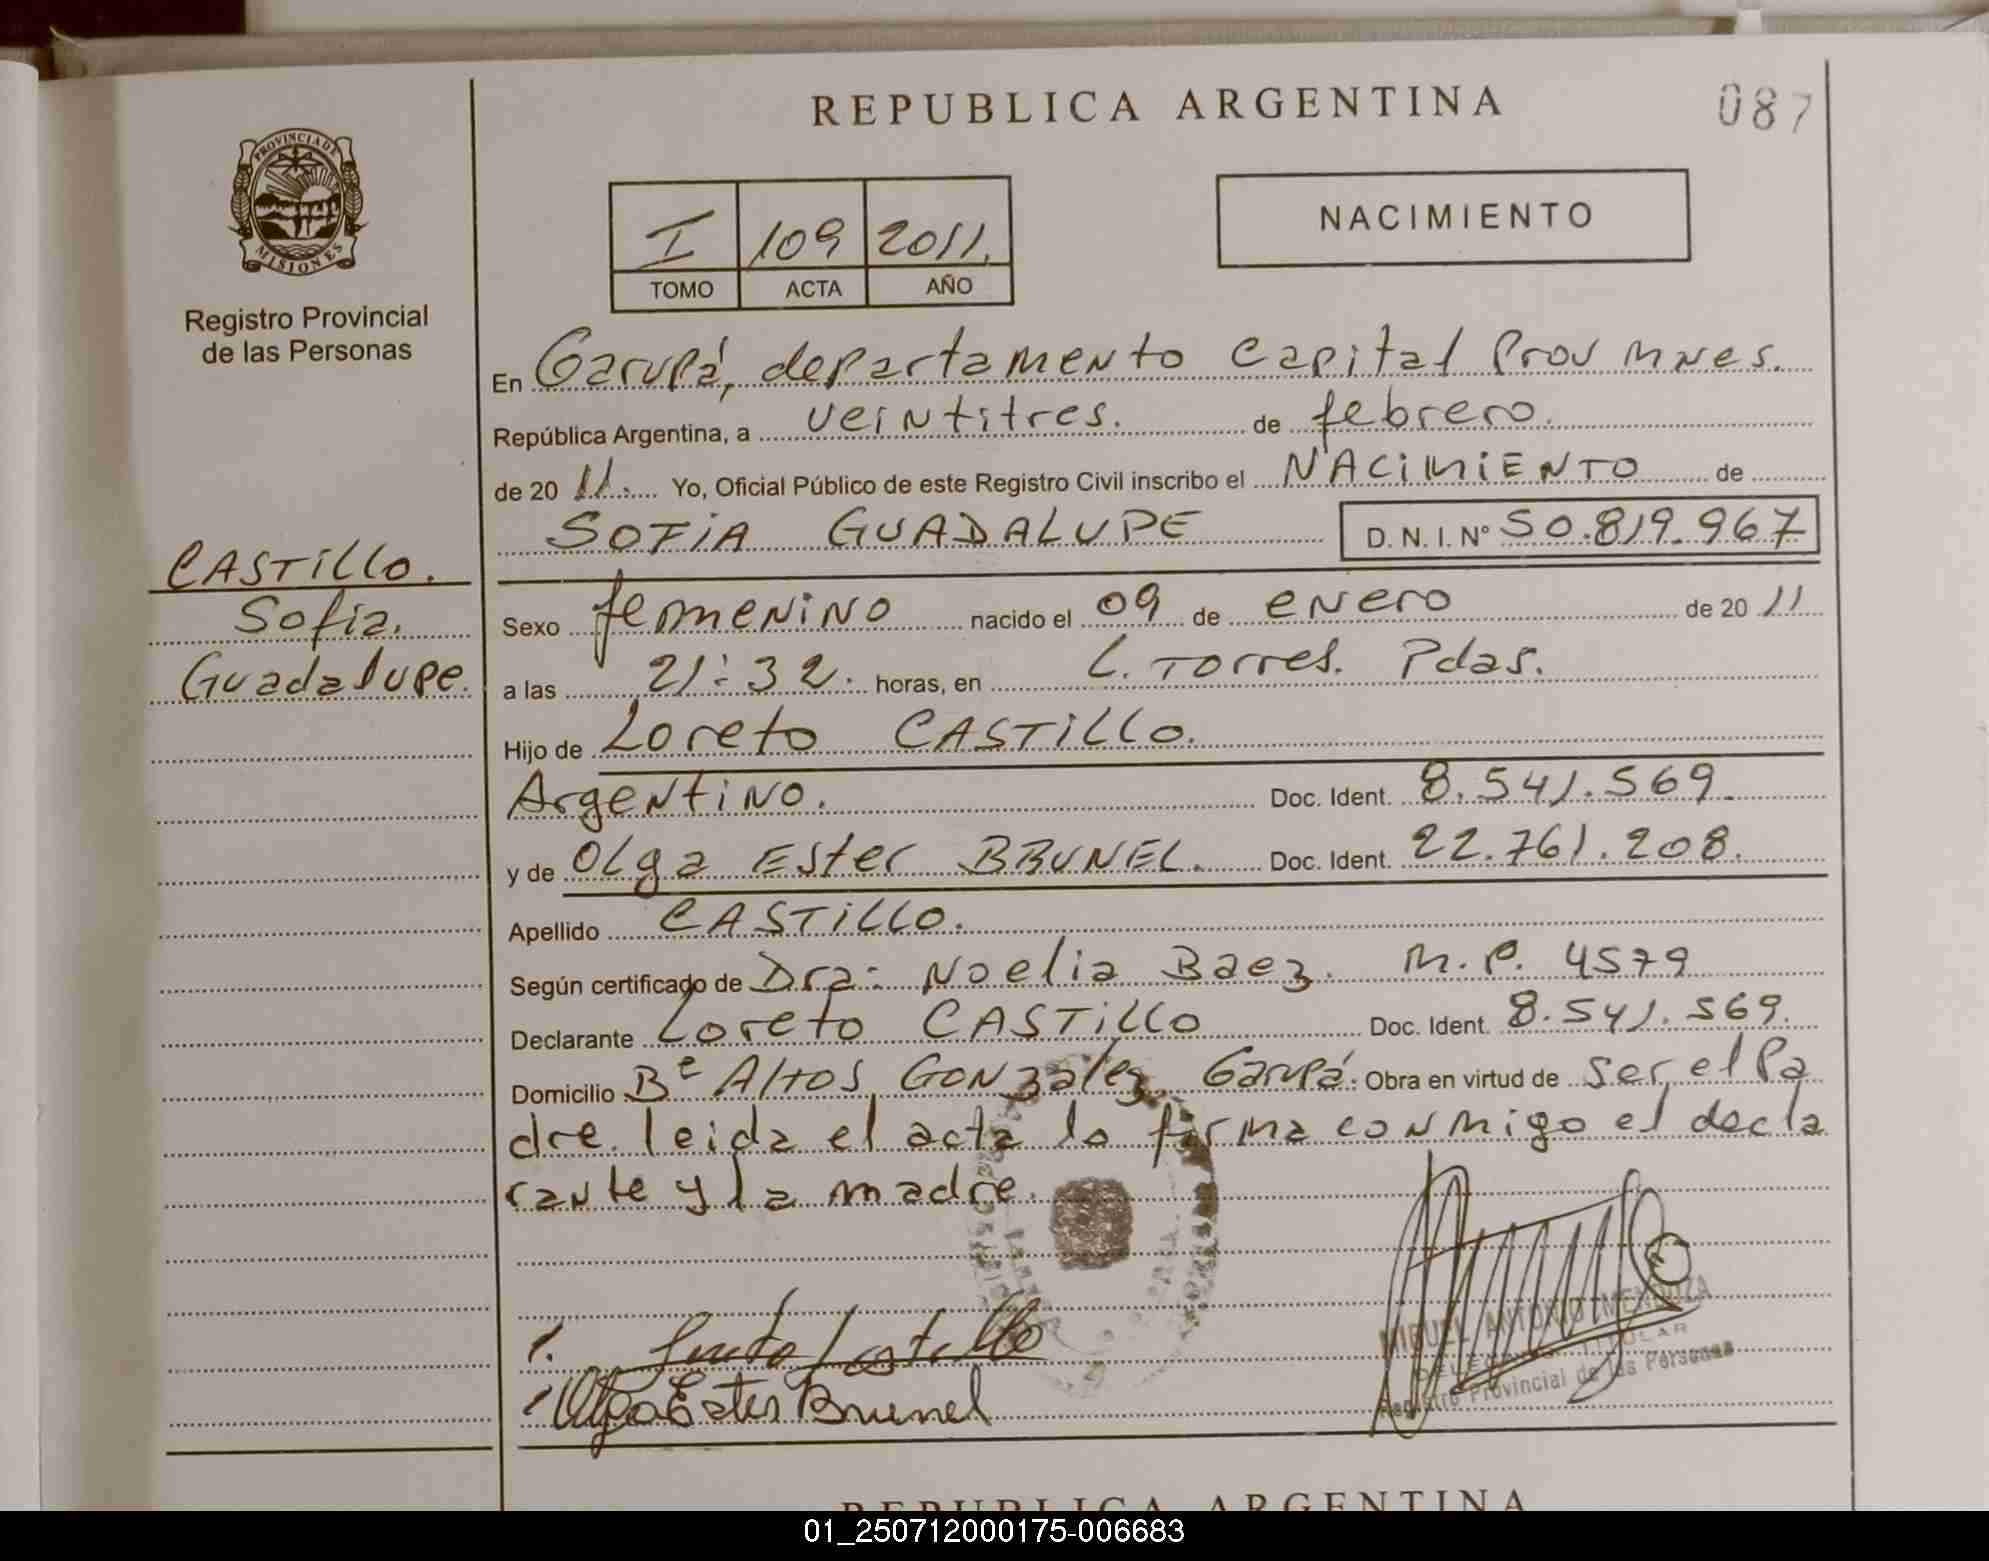 REPUBLICA ARGENTINA
087
PROVINCIA DE
MISIONES
Registro Provincial
de las Personas
I 109 2011.
TOMO ACTA AÑO
NACIMIENTO
En Garupá, departamento Capital Prov Mnes.
República Argentina, a veintitres. de febrero.
de 20 11. Yo, Oficial Público de este Registro Civil inscribo el NACIMIENTO de
SOFIA GUADALUPE D.N.I. Nº 50.819.967
CASTILLO.
Sofia.
Guadalupe.
Sexo femenino nacido el 09 de enero de 20 11
a las 21:32. horas, en L. Torres. Pdas.
Hijo de Loreto CASTILLO.
Argentino. Doc. Ident. 8.541.569.
y de Olga Ester BRUNEL. Doc. Ident. 22.761.208.
Apellido CASTILLO.
Según certificado de Dra: Noelia Baez. M.P. 4579
Declarante Loreto CASTILLO Doc. Ident. 8.541.569.
Domicilio Bº Altos Gonzalez. Garupá. Obra en virtud de ser el Pa
dre. leida el acta la firma conmigo el decla
rante y la madre.
1. Loreto Castillo
Olga Ester Brunel
MIGUEL ANTONIO MENDOZA
DELEGADO TITULAR
Registro Provincial de las Personas
REPUBLICA ARGENTINA
01_250712000175-006683